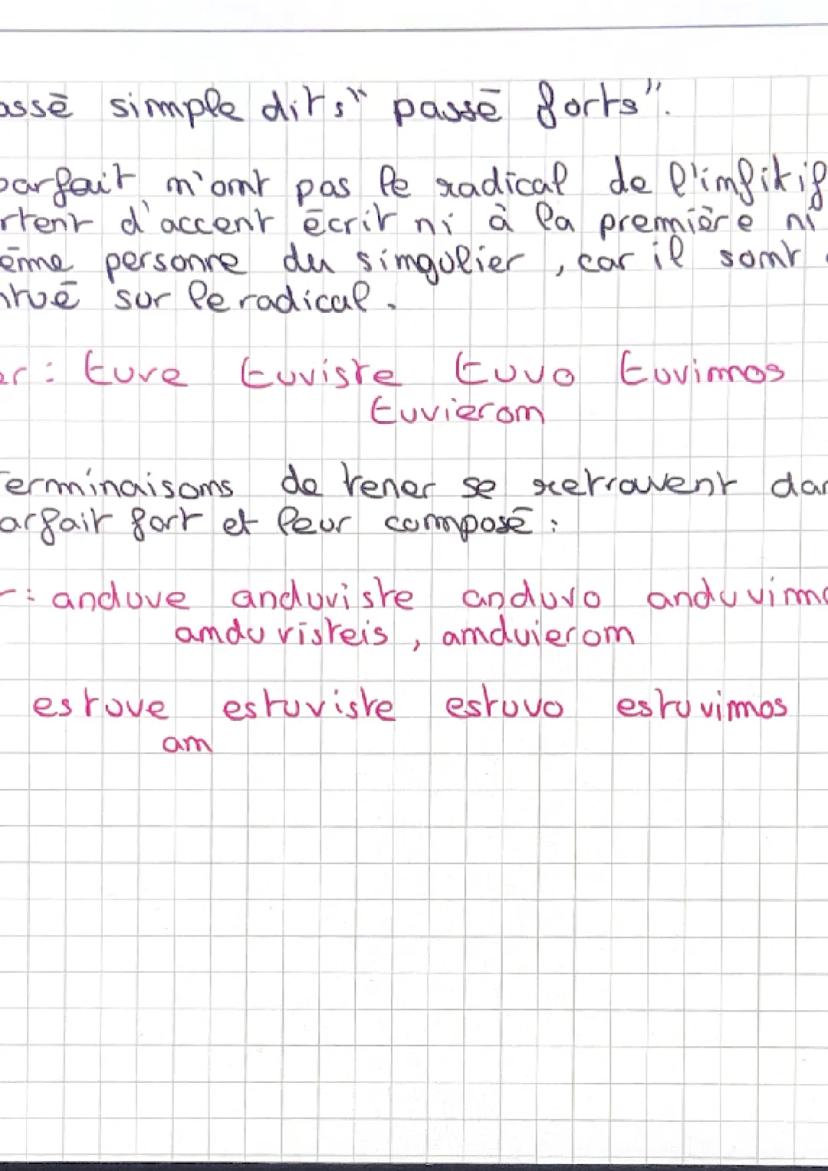 assé simple dits "passé forts".
parfait n'ont pas le radical de l'infitif
rtent d'accent écrit ni à la première ni
ème personne du singulier, car il sont
ntué sur le radical.
er : tuve tuviste tuvo tuvimos
tuvieron
Terminaisons de tener se retrouvent dan
arfait fort et leur composé :
r : anduve anduviste anduvo anduvimo
anduvisteis, anduieron
estuve estuviste estuvo estuvimos
an